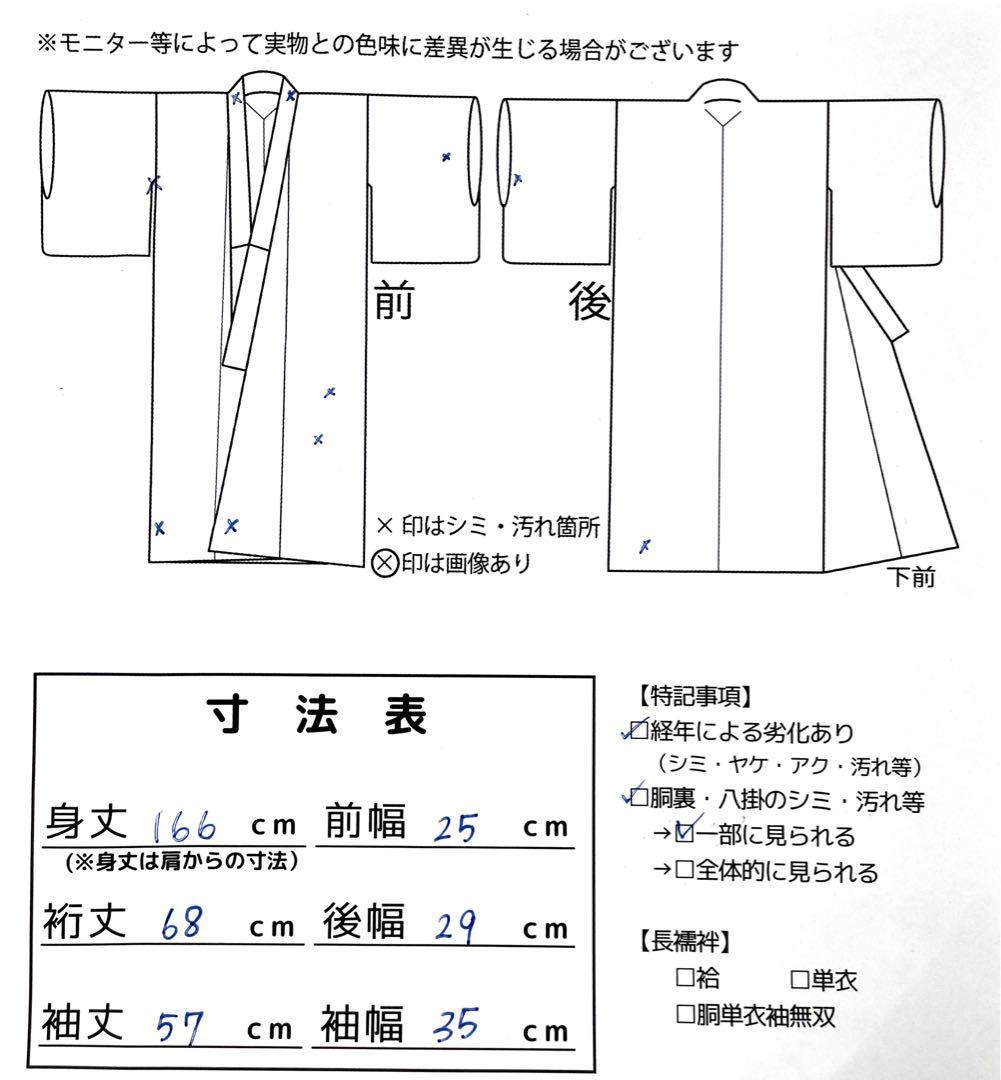 ※モニター等によって実物との色味に差異が生じる場合がございます
前
後
× 印はシミ・汚れ箇所
⊗印は画像あり
下前
寸 法 表
身丈 166 cm 前幅 25 cm
(※身丈は肩からの寸法)
裄丈 68 cm 後幅 29 cm
袖丈 57 cm 袖幅 35 cm
【特記事項】
☑経年による劣化あり
（シミ・ヤケ・アク・汚れ等）
☑胴裏・八掛のシミ・汚れ等
→☑一部に見られる
→□全体的に見られる
【長襦袢】
□袷 □単衣
□胴単衣袖無双